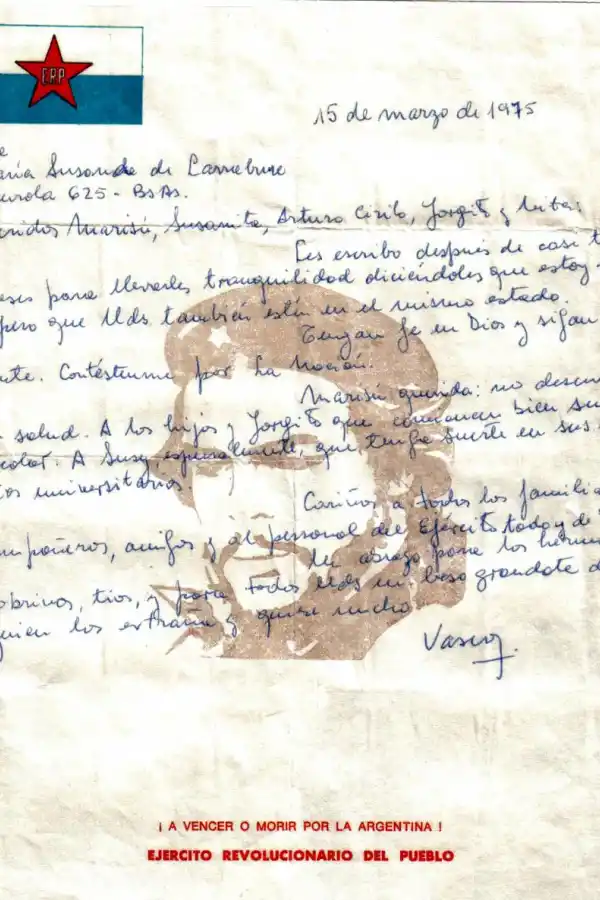 ERP
15 de marzo de 1975
Susana de de Larrabure
625 - BsAs.
Marisú, Susanita, Arturo Cirilo, Jorgito y
Les escribo después de casi
para llevarles tranquilidad diciéndoles que estoy
pero que Uds. también estén en el mismo estado.
Tengan fe en Dios y sigan
Contéstenme por La Nación.
Marisú querida: no
salud. A los hijos y Jorgito que comiencen bien su
A Susy, especialmente, que tenga suerte en sus
universitarios
Cariños a todos los
amigos y al personal del Ejército todo y de
Un abrazo para los
tíos, y para todos Uds un beso grandote
quien los extraña y quiere mucho
Vasco
¡ A VENCER O MORIR POR LA ARGENTINA !
EJERCITO REVOLUCIONARIO DEL PUEBLO